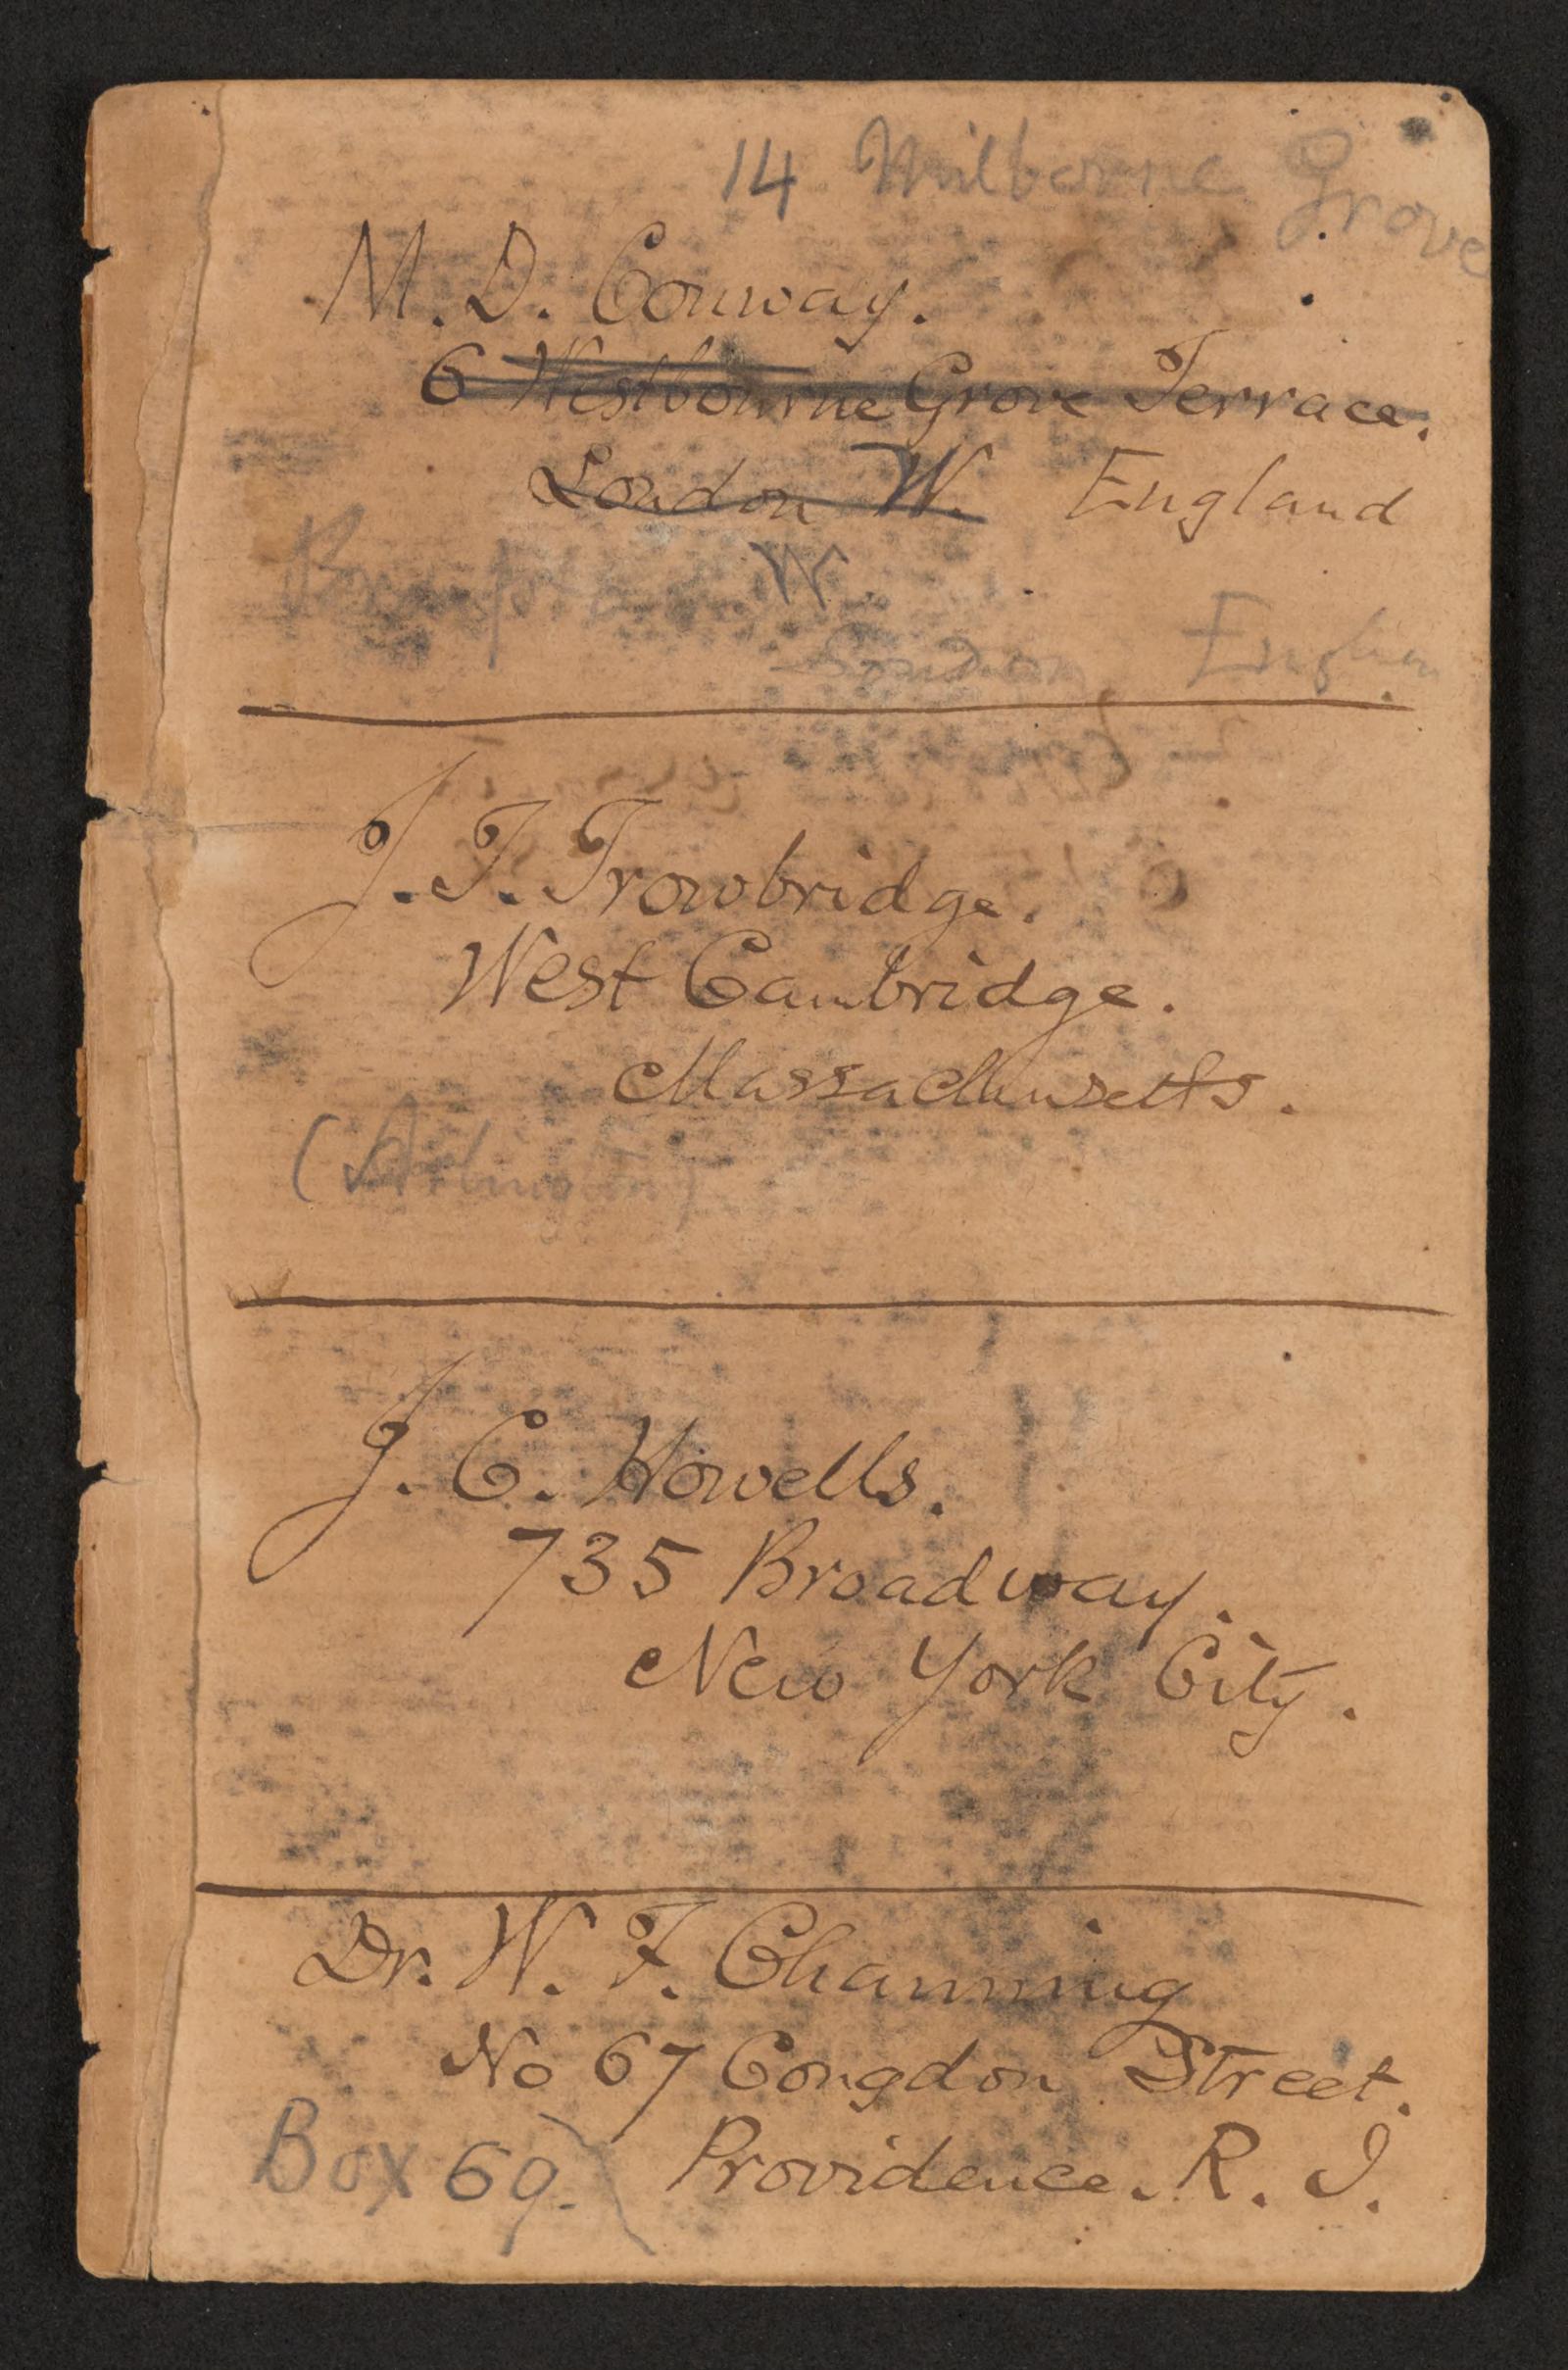 14 Milborne Grove
M. D. Conway.
6 Westbourne Grove Terrace.
London W. England
Brompton W.
London Englan
J. T. Trowbridge.
West Cambridge.
Massachusetts.
(Arlington)
J. C. Howells.
735 Broadway.
New York City.
Dr. W. F. Channing
No 67 Congdon Street.
Box 69. Providence. R. I.